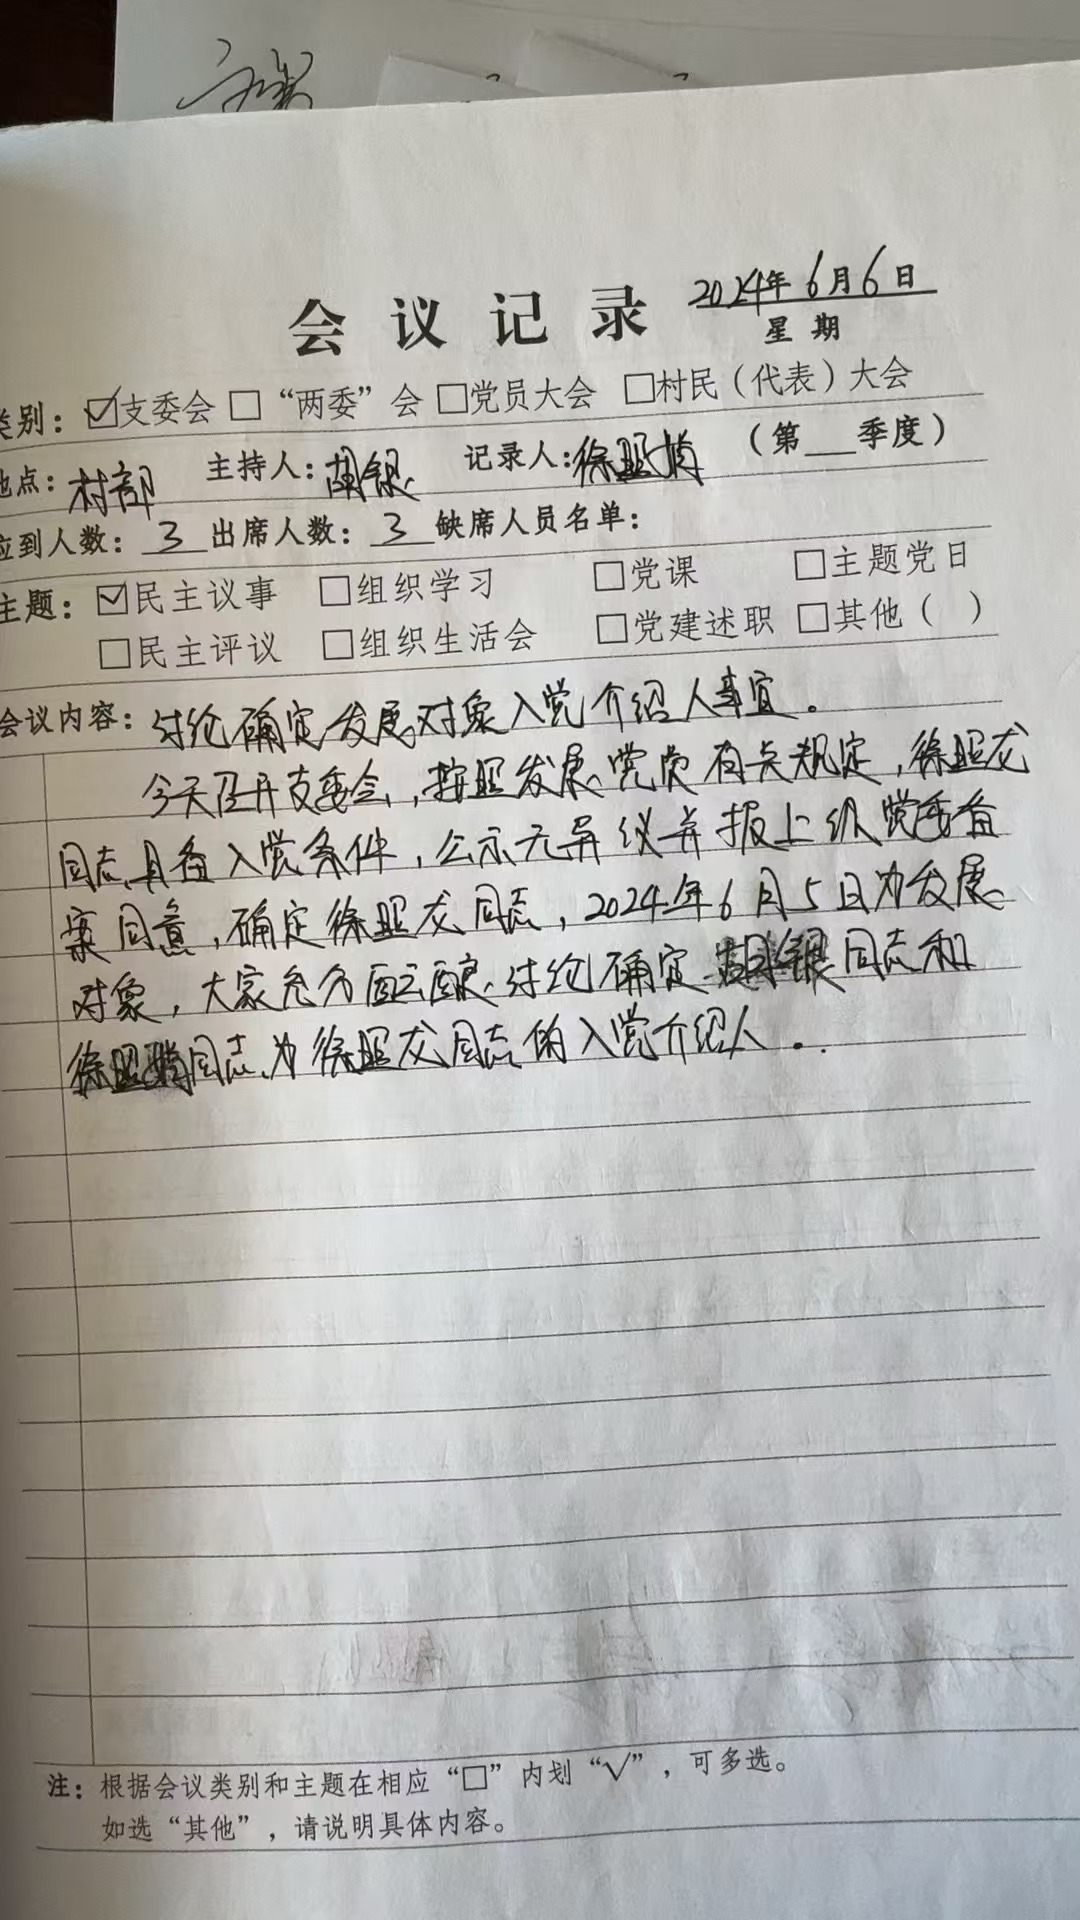 会议记录 2024年6月6日
星期
类别：☑支委会 □“两委”会 □党员大会 □村民（代表）大会
地点：村部 主持人：胡银 记录人：徐照 （第___季度）
应到人数：3 出席人数：3 缺席人员名单：
主题：☑民主议事 □组织学习 □党课 □主题党日
□民主评议 □组织生活会 □党建述职 □其他（ ）
会议内容：讨论确定发展对象入党介绍人事宜。
今天召开支委会，按照发展党员有关规定，徐照龙
同志具备入党条件，公示无异议并报上级党委备
案同意，确定徐照龙同志，2024年6月5日为发展
对象，大家充分酝酿讨论确定 银同志和
徐照 同志为徐照龙同志的入党介绍人。
注：根据会议类别和主题在相应“□”内划“√”，可多选。
如选“其他”，请说明具体内容。